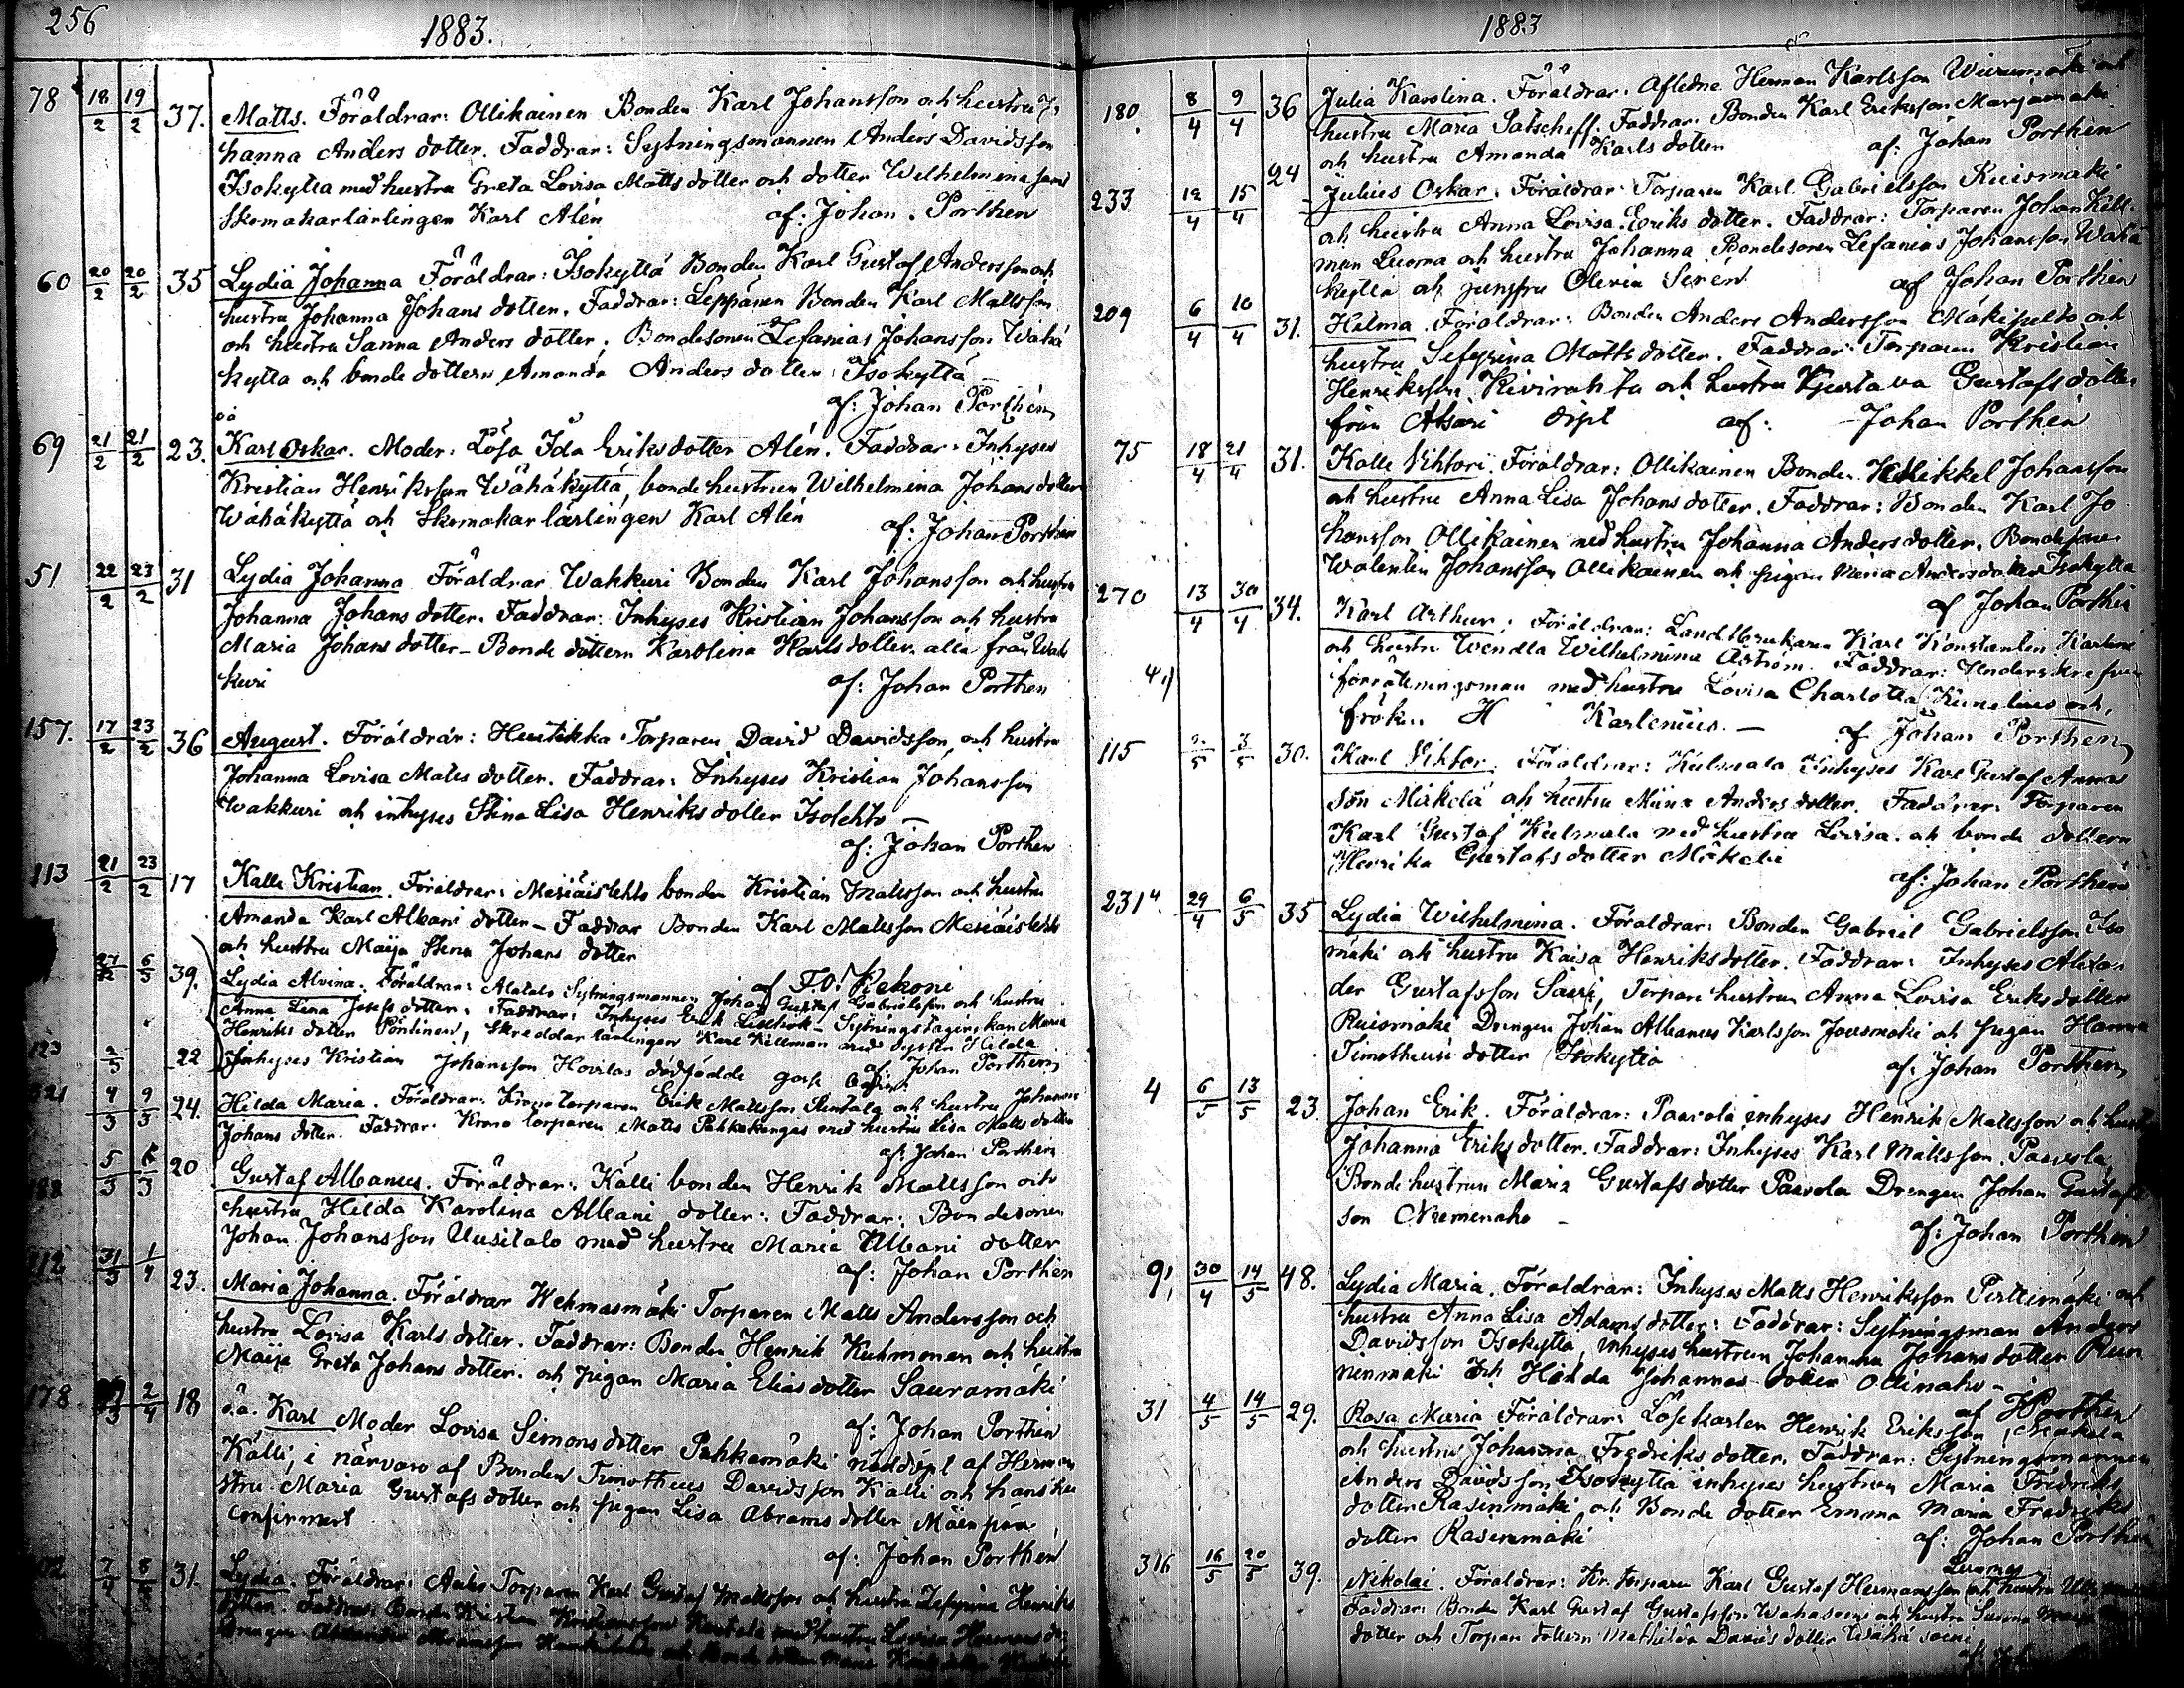 256
1883.
78 18/2 19/2 37. Matts. Föräldrar: Ollikainen Bonden Karl Johansson och hustru Jo
hanna Anders dotter. Faddrar: Sytningsmannen Anders Davidsson
Isokyttä med hustru Greta Lovisa Matts dotter och dotter Wilhelmina samt
Skomakarlärlingen Karl Alén af: Johan Porthén
60 20/2 20/2 35 Lydia Johanna Föräldrar: Isokyttä Bonden Karl Gustaf Andersson och
hustru Johanna Johans dotter. Faddrar: Leppänen Bonden Karl Mattsson
och hustru Sanna Anders dotter, Bondesonen Zefanias Johansson Wähä
kyttä och bonde dottern Amanda Anders dotter Isokyttä
af: Johan Porthén
oä
69 21/2 21/2 23. Karl Oskar. Moder: Lösa Ida Eriksdotter Alén. Faddrar: Inhyses
Kristian Henriksson Wähäkyttä, bonde hustrun Wilhelmina Johans dotter
Wähäkyttä och Skomakarlärlingen Karl Alén
af: Johan Porthén
51 22/2 23/2 31 Lydia Johanna Föräldrar Wakkuri Bonden Karl Johansson och hustru
Johanna Johans dotter. Faddrar: Inhyses Kristian Johansson och hustru
Maria Johans dotter – Bonde dottern Karolina Karls dotter alla från Wak
kuri af: Johan Porthen
157. 17/2 23/2 36 August. Föräldrar: Huitikka Torparen David Davidsson och hustru
Johanna Lovisa Matts dotter. Faddrar: Inhyses Kristian Johansson
Wakkuri och inhyses Stina Lisa Henriks dotter Isolehto –
af: Johan Porthen
113 21/2 23/2 17 Kalle Kristian. Föräldrar: Mesiäislehto bonden Kristian Mattsson och hustru
Amanda Karl Albani dotter – Faddrar Bonden Karl Mattsson Mesiäislehto
och hustru Maija Stina Johans dotter
af F.O. Rekoni
27/2 6/3 39. Lydia Alvina. Föräldrar: Alatalo Sytningsmannen Johan Gustaf Gabrielsson och hustru
Anna Lena Josefs dotter. Faddrar: Inhyses Erik – Sytningstagerskan Maria
Henriks dotter Pöntinen, Skreddar lärlingen Karl Killman med syster Hilda
af: Johan Porthen
123 2/3 22 Inhyses Kristian Johansson Hovilas dödfödde gosse
4/3 9/3 24. Hilda Maria. Föräldrar: Krono torparen Erik Mattsson Rintala och hustru Johanna
Johans dotter. Faddrar: Krono torparen Matts Pahkakangas med hustru Lisa Matts dotter
af: Johan Porthen
5/3 20 Gustaf Albanus. Föräldrar: Källi bonden Henrik Mattsson och
hustru Hilda Karolina Albani dotter: Faddrar: Bondesonen
Johan Johansson Uusitalo med hustru Maria Albani dotter
af: Johan Porthen
31/3 1/4 23. Maria Johanna. Föräldrar Wehmasmäki Torparen Matts Andersson och
hustru Lovisa Karls dotter. Faddrar: Bonden Henrik Kuhmonen och hustru
Maija Greta Johans dotter. och pigan Maria Elias dotter Sauramäki
af: Johan Porthen
178 2/4 18 o.ä. Karl Moder Lovisa Simons dotter Pahkamäki nöddöpt af Herman
Källi, i närvaro af Bonden Timotheus Davidsson Källi och hans hu
stru Maria Gustafs dotter och pigan Lisa Abrams dotter Mäenpää
Confirmert af: Johan Porthen
7/4 8/4 31. Lydia. Föräldrar: Torparen Karl Gustaf Mattsson och hustru Zefyrina Henriks
dotter. Faddrar: Bonden Kristian med hustru Lovisa
1883
180. 8/4 9/4 36 Julia Karolina. Föräldrar: Aflidne Herman Karlsson Wiurumäki och
hustru Maria Satscheff. Faddrar: Bonden Karl Eriksson Marjamäki
och hustru Amanda Karls dotter af: Johan Porthén
233 12/4 15/4 24 Julius Oskar. Föräldrar: Torparen Karl Gabrielsson Ruismäki
och hustru Anna Lovisa Eriks dotter. Faddrar: Torparen Johan Kill
man Luoma och hustru Johanna. Bondesonen Zefanias Johansson Wähä
kyttä och jungfru Olivia Serén af Johan Porthén
209 6/4 10/4 31. Hilma. Föräldrar: Bonden Anders Andersson Mäkipelto och
hustru Sefyrina Matts dotter. Faddrar: Torparen Kristian
Henriksson Kiviranta och hustru Gustava Gustafs dotter
från Alseri döpt af: Johan Porthén
75 18/4 21/4 31. Kalle Viktori. Föräldrar: Ollikainen Bonden Mikkel Johansson
och hustru Anna Lisa Johans dotter. Faddrar: Bonden Karl Jo
hansson Ollikainen med hustru Johanna Anders dotter. Bondesonen
Walentin Johansson Ollikainen och pigan Maria Andersdotter Isokyttä
af Johan Porthén
270 13/4 30/4 34. Karl Arthur; Föräldrar: Landtbrukaren Karl Konstantin Karlenius
och hustru Wendla Wilhelmina Åström. Faddrar: Underskrefven
4,) förrättningsman med hustru Lovisa Charlotta Kumelius och
fröken H Karlenius. – af Johan Porthen
115 2/5 3/5 30. Karl Viktor. Föräldrar: Kulmala Inhyses Karl Gustaf Anders
son Mäkelä och hustru Miina Anders dotter. Faddrar: Torparen
Karl Gustaf Kulmala med hustru Lovisa. och bonde dottern
Henrika Gustafs dotter Mäkelä
af: Johan Porthen
231 4. 29/4 6/5 35 Lydia Wilhelmina. Föräldrar: Bonden Gabriel Gabrielsson Iso
mäki och hustru Kaisa Henriks dotter. Faddrar: Inhyses Alexan
der Gustafsson Saari, Torpare hustrun Anna Lovisa Eriks dotter
Ruismäki Drengen Johan Albanus Karlsson Jousmäki och pigan Hanna
Timotheusi dotter Isokyttä af: Johan Porthen
4 6/5 13/5 23. Johan Erik. Föräldrar: Paavola inhyses Henrik Mattsson och hustru
Johanna Eriks dotter. Faddrar: Inhyses Karl Mattsson Paavola,
Bonde hustrun Maria Gustafs dotter Paavola Drengen Johan Gustafs
son Niemenaho – af: Johan Porthen
9, 30/4 14/5 48. Lydia Maria. Föräldrar: Inhyses Matts Henriksson Perttimäki och
hustru Anna Lisa Adams dotter: Faddrar: Sytningsman Anders
Davidsson Isokyttä, inhyses hustrun Johanna Johans dotter Ruu
nenmäki och Hilda Johannes dotter Ollinaho –
af JPorthen
31 4/5 14/5 29. Rosa Maria Föräldrar: Lösekarlen Henrik Eriksson Mäkelä
och hustru Johanna Fredriks dotter. Faddrar: Sytningsmannen
Anders Davidsson Isokyttä inhyses hustrun Maria Fredriks
dotter Rasinmäki och Bonde dotter Emma Maria Fredriks
dotter Rasinmäki af: Johan Porthén
316 16/5 20/5 39. Nikolai. Föräldrar: Kr. torparen Karl Gustaf Hermansson Luoma och hustru
Faddrar: Bonden Karl Gustaf Gustafsson Wähäsoini och hustru Susanna
dotter och Torpar dottern Mathilda Davids dotter Wähä soini